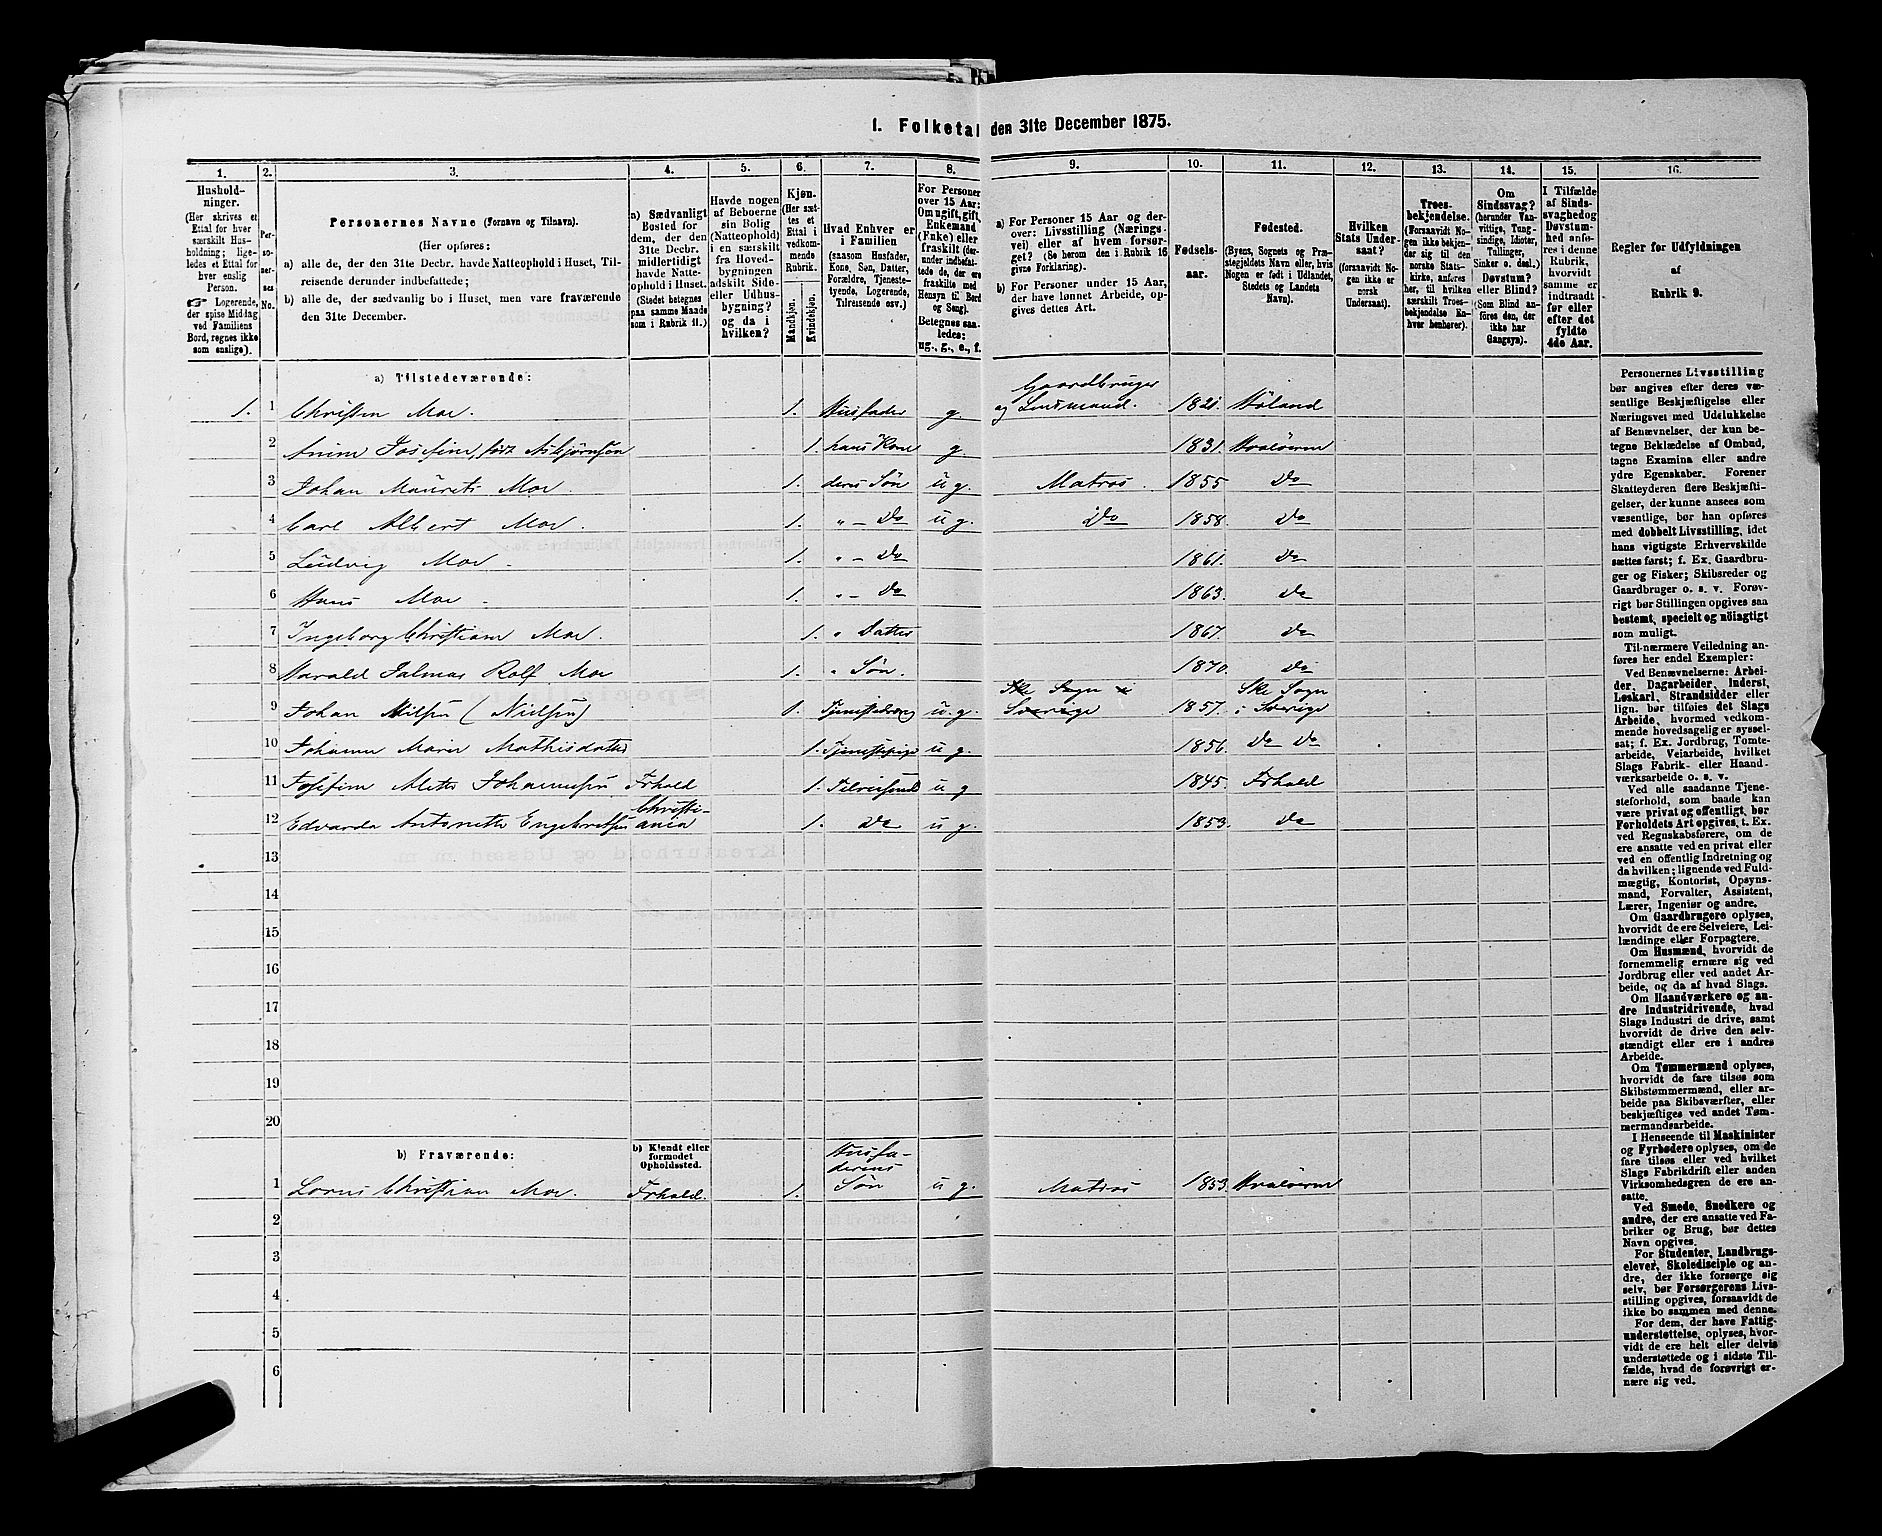 1. Folketal den 31te December 1875.
1. 2. 3. 4. 5. 6. 7. 8. 9. 10. 11. 12. 13. 14. 15. 16.
Hushold-
ninger.
(Her skrives et
Ettal for hver
særskilt Hus-
holdning; lige-
ledes et Ettal for
hver enslig
Person.
Logerende,
der spise Middag
ved Familiens
Bord, regnes ikke
som enslige).
Per-
so-
ner-
nes
No.
Personernes Navne (Fornavn og Tilnavn).
(Her opføres:
a) alle de, der den 31te Decbr. havde Natteophold i Huset, Til-
reisende derunder indbefattede;
b) alle de, der sædvanlig bo i Huset, men vare fraværende
den 31te December.
a) Sædvanligt
Bosted for
dem, der den
31te Decbr.
midlertidigt
havde Natte-
ophold i Huset.
(Stedet betegnes
paa samme Maade
som i Rubrik 11.)
Havde nogen
af Beboerne
sin Bolig
(Natteophold)
i en særskilt
fra Hoved-
bygningen
adskilt Side-
eller Udhus-
bygning?
og da i
hvilken?
Kjøn.
(Her sæt-
tes et
Ettal i
vedkom-
mende
Rubrik.
Mandkjøn.
Kvindekjøn.
Hvad Enhver er
i Familien
(saasom Husfader,
Kone, Søn, Datter,
Forældre, Tjeneste-
tyende, Logerende,
Tilreisende osv.)
For Personer
over 15 Aar:
Om ugift, gift,
Enkemand
(Enke) eller
fraskilt (der-
under indbefat-
tede de, der ere
fraskilte med
Hensyn til Bord
og Seng).
Betegnes saa-
ledes:
ug., g., e., f.
a) For Personer 15 Aar og der-
over: Livsstilling (Nærings-
vei) eller af hvem forsør-
get? (Se herom den i Rubrik 16
givne Forklaring).
b) For Personer under 15 Aar,
der have lønnet Arbeide, op-
gives dettes Art.
Fødsels-
aar.
Fødested.
(Byens, Sognets og Præ-
stegjeldets Navn eller, hvis
Nogen er født i Udlandet,
Stedets og Landets
Navn).
Hvilken
Stats Under-
saat?
(forsaavidt No-
gen ikke er
norsk
Undersaat).
Troes-
bekjendelse.
(Forsaavidt No-
gen ikke bekjen-
der sig til den
norske Stats-
kirke, anføres
her, til hvilken
særskilt Troes-
bekjendelse En-
hver henhører).
Om
Sindssvag?
(herunder Van-
vittige, Tung-
sindige, Idioter,
Tullinger,
Sinker o. desl.)
Døvstum?
eller Blind?
(Som Blind an-
føres den, der
ikke har
Gangsyn).
I Tilfælde
af Sinds-
svaghed og
Døvstum-
hed anfø-
res i denne
Rubrik,
hvorvidt
samme er
indtraadt
før eller
efter det
fyldte
4de Aar.
Regler for Udfyldningen
af
Rubrik 9.
a) Tilstedeværende:
1. 1 Christen Moe. 1. Husfader g. Gaardbruger og Lensmand. 1821. Høland
2 Josefine, født Asbjørnsen 1. hans Kone g 1831. Hvaløerne
3 Johan Maurits Moe. 1. deres Søn ug. Matros. 1855 Do
4 Carl Albert Moe. 1. " - Do ug. Do 1858. Do
5 Ludvig Moe 1. " - Do 1861. Do
6 Hans Moe 1. " - Do 1863. Do
7 Ingeborg Christiane Moe. 1. " Datter 1867. Do
8 Harald Jalmar Rolf Moe 1. " Søn. 1870. Do
9 Johan Nilsen (Nielsen) 1. Tjenestedreng u.g. Ske Sogn i Sverige 1857. Ske Sogn i Sverige
10 Johanne Marie Mathisdatter 1. Tjenestepige ug. 1856. Do Do
11 Josefine Mette Johannesen Frhald 1. Tilreisende ug 1845. Frhald
12 Edvarda Antonette Engebretsen Christiania 1. Do ug. 1853. Do
13
14
15
16
17
18
19
20
b) Fraværende:
b) Kjendt eller
formodet
Opholdssted.
1 Christian Moe. Frhald. 1. Husfaderens Søn ug. Matros 1853. Hvaløerne
2
3
4
5
6
Personernes Livsstilling
bør angives efter deres væ-
sentlige Beskjæftigelse eller
Næringsvei med Udelukkelse
af Benævnelser, der kun be-
tegne Beklædelse af Ombud,
tagne Examina eller andre
ydre Egenskaber. Forener
Skatteyderen flere Beskjæfti-
gelser, der kunne ansees som
væsentlige, bør han opføres
med dobbelt Livsstilling, idet
hans vigtigste Erhvervskilde
sættes først; f. Ex. Gaardbru-
ger og Fisker; Skibsreder og
Gaardbruger o. s. v. Forøv-
rigt bør Stillingen opgives saa
bestemt, specielt og nöiagtigt
som muligt.
Til nærmere Veiledning an-
føres her endel Exempler:
Ved Benævnelserne: Arbei-
der, Dagarbeider, Inderst,
Løskarl, Strandsidder eller
lign. bør tilføies det Slags
Arbeide, hvormed vedkom-
mende hovedsagelig er syssel-
sat; f. Ex. Jordbrug, Tomte-
arbeide, Veiarbeide, hvilket
Slags Fabrik- eller Haand-
værksarbeide o. s. v.
Ved alle saadanne Tjene-
steforhold, som baade kan
være privat og offentlig, bør
Forholdets Art opgives, t. Ex.
ved Regnskabsførere, om de
ere ansatte ved en privat eller
ved en offentlig Indretning og
da hvilken; lignende ved Fuld-
mægtig, Kontorist, Opsyns-
mand, Forvalter, Assistent,
Lærer, Ingeniør og andre.
Om Gaardbrugere oplyses,
hvorvidt de ere Selveiere, Lei-
lændinge eller Forpagtere.
Om Husmænd, hvorvidt de
fornemmelig ernære sig ved
Jordbrug eller ved andet Ar-
beide, og da af hvad Slags.
Om Haandværkere og an-
dre Industridrivende, hvad
Slags Industri de drive, samt
hvorvidt de drive den selv-
stændigt eller ere i andres
Arbeide.
Om Tømmermænd oplyses,
hvorvidt de fare tilsøs som
Skibstømmermænd, eller ar-
beide paa Skibsværfter, eller
beskjæftiges ved andet Tøm-
mermandsarbeide.
I Henseende til Maskinister
og Fyrbødere oplyses, om de
fare tilsøs eller ved hvilket
Slags Fabrikdrift eller anden
Virksomhedsgren de ere an-
satte.
Ved Smede, Snedkere og
andre, der ere ansatte ved Fa-
briker og Brug, bør dettes
Navn opgives.
For Studenter, Landbrugs-
elever, Skoledisciple og an-
dre, der ikke forsørge sig
selv, bør Forsørgerens Livs-
stilling opgives, forsaavidt de
ikke bo sammen med denne.
For dem, der have Fattig-
understøttelse, oplyses, hvor-
vidt de ere helt eller delvis
understøttede og i sidste Til-
fælde, hvad de forøvrigt er-
nære sig ved.